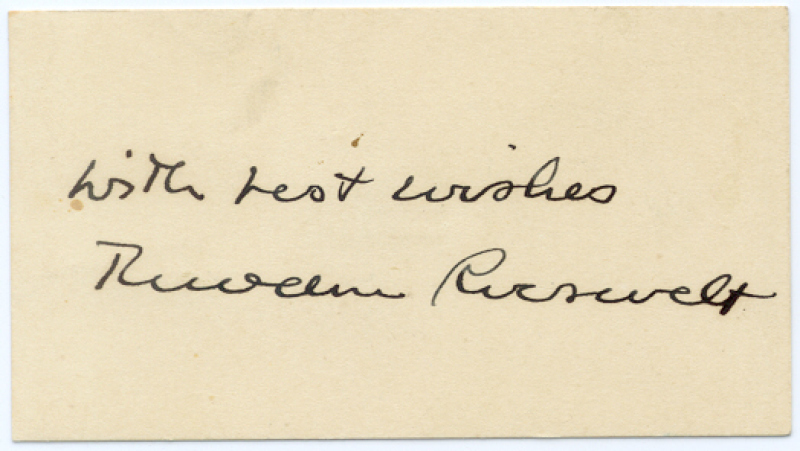 with best wishes
Theodore Roosevelt